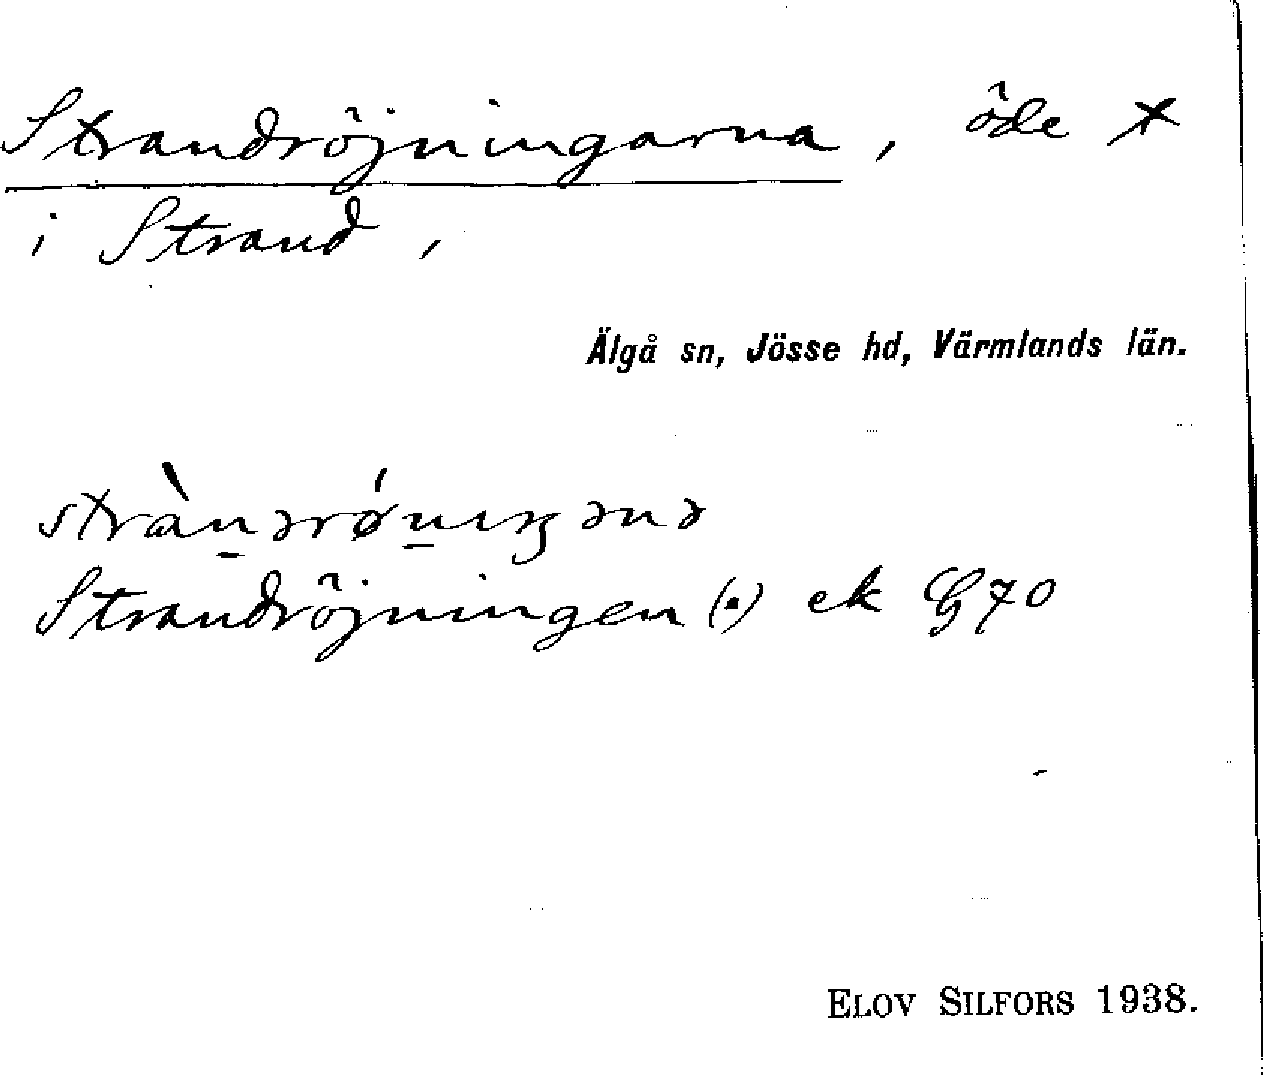 Strandröjningarna, öde t
i Strand,
Älgå sn, Jösse hd, Värmlands län.
Strandröjningen (.) ek G70
ELOV SILFORS 1938.